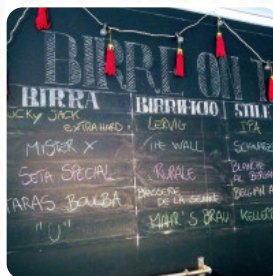 BIRRE ON T
BIRRA BIRRIFICIO STILE
LUCKY JACK EXTRA HARD LERVIG IPA
MISTER X THE WALL SCHWARZ
SETA SPECIAL RURALE BLANCHE AL BERGAM
TARAS BOULBA BRASSERIE DE LA SENNE BELGIAN P
"U" MAHR'S BRÄU KELLER